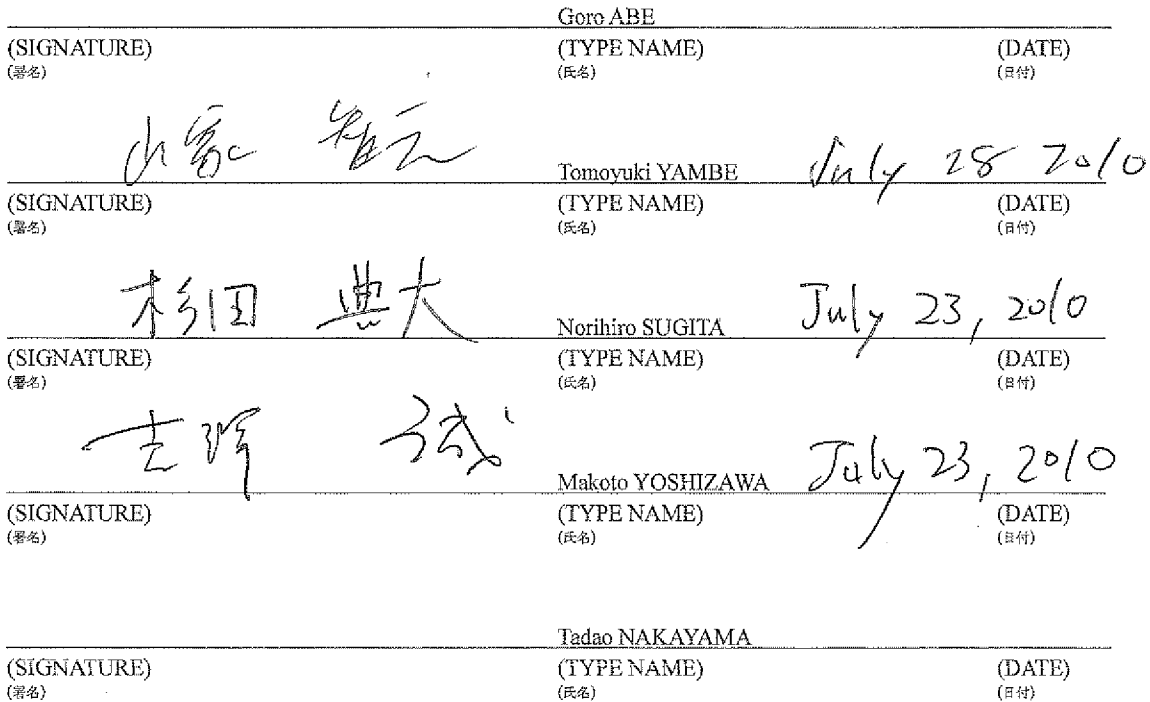 Goro ABE
(SIGNATURE) (TYPE NAME) (DATE)
(署名) (氏名) (日付)
山家 智之 Tomoyuki YAMBE July 28 2010
(SIGNATURE) (TYPE NAME) (DATE)
(署名) (氏名) (日付)
杉田 典大 Norihiro SUGITA July 23, 2010
(SIGNATURE) (TYPE NAME) (DATE)
(署名) (氏名) (日付)
吉澤 誠 Makoto YOSHIZAWA July 23, 2010
(SIGNATURE) (TYPE NAME) (DATE)
(署名) (氏名) (日付)
Tadao NAKAYAMA
(SIGNATURE) (TYPE NAME) (DATE)
(署名) (氏名) (日付)